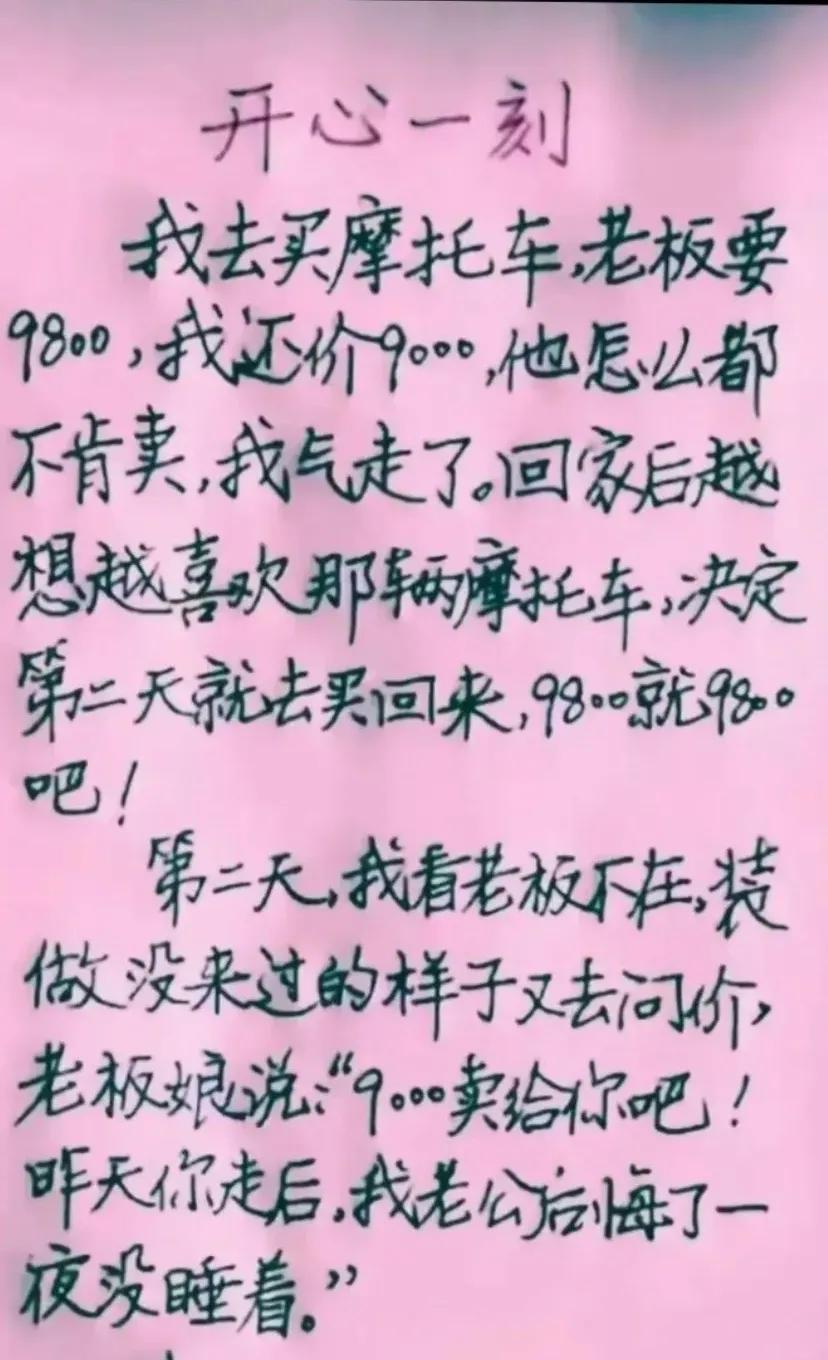 开心一刻
我去买摩托车,老板要
9800,我还价9000,他怎么都
不肯卖,我气走了。回家后越
想越喜欢那辆摩托车,决定
第二天就去买回来,9800就9800
吧!
第二天,我看老板不在,装
做没来过的样子又去问价,
老板娘说:“9000卖给你吧!
昨天你走后,我老公后悔了一
夜没睡着。”